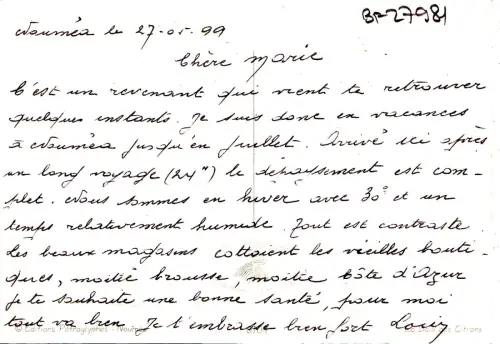 BP-27981
Nouméa le 27-05-99
Chère Marie
C'est un revenant qui vient te retrouver
quelques instants. Je suis donc en vacances
à Nouméa jusqu'en Juillet. Arrivé ici après
un long voyage (24") le dépaysement est com-
plet. Nous sommes en hiver avec 30° et un
temps relativement humide. Tout est contraste
les beaux magasins cottoient les vieilles bouti-
ques, moitié brousse, moitié Côte d'Azur
je te souhaite une bonne santé, pour moi
tout va bien Je t'embrasse bien fort Louis
© Editions Pétroglyphes - Nouméa